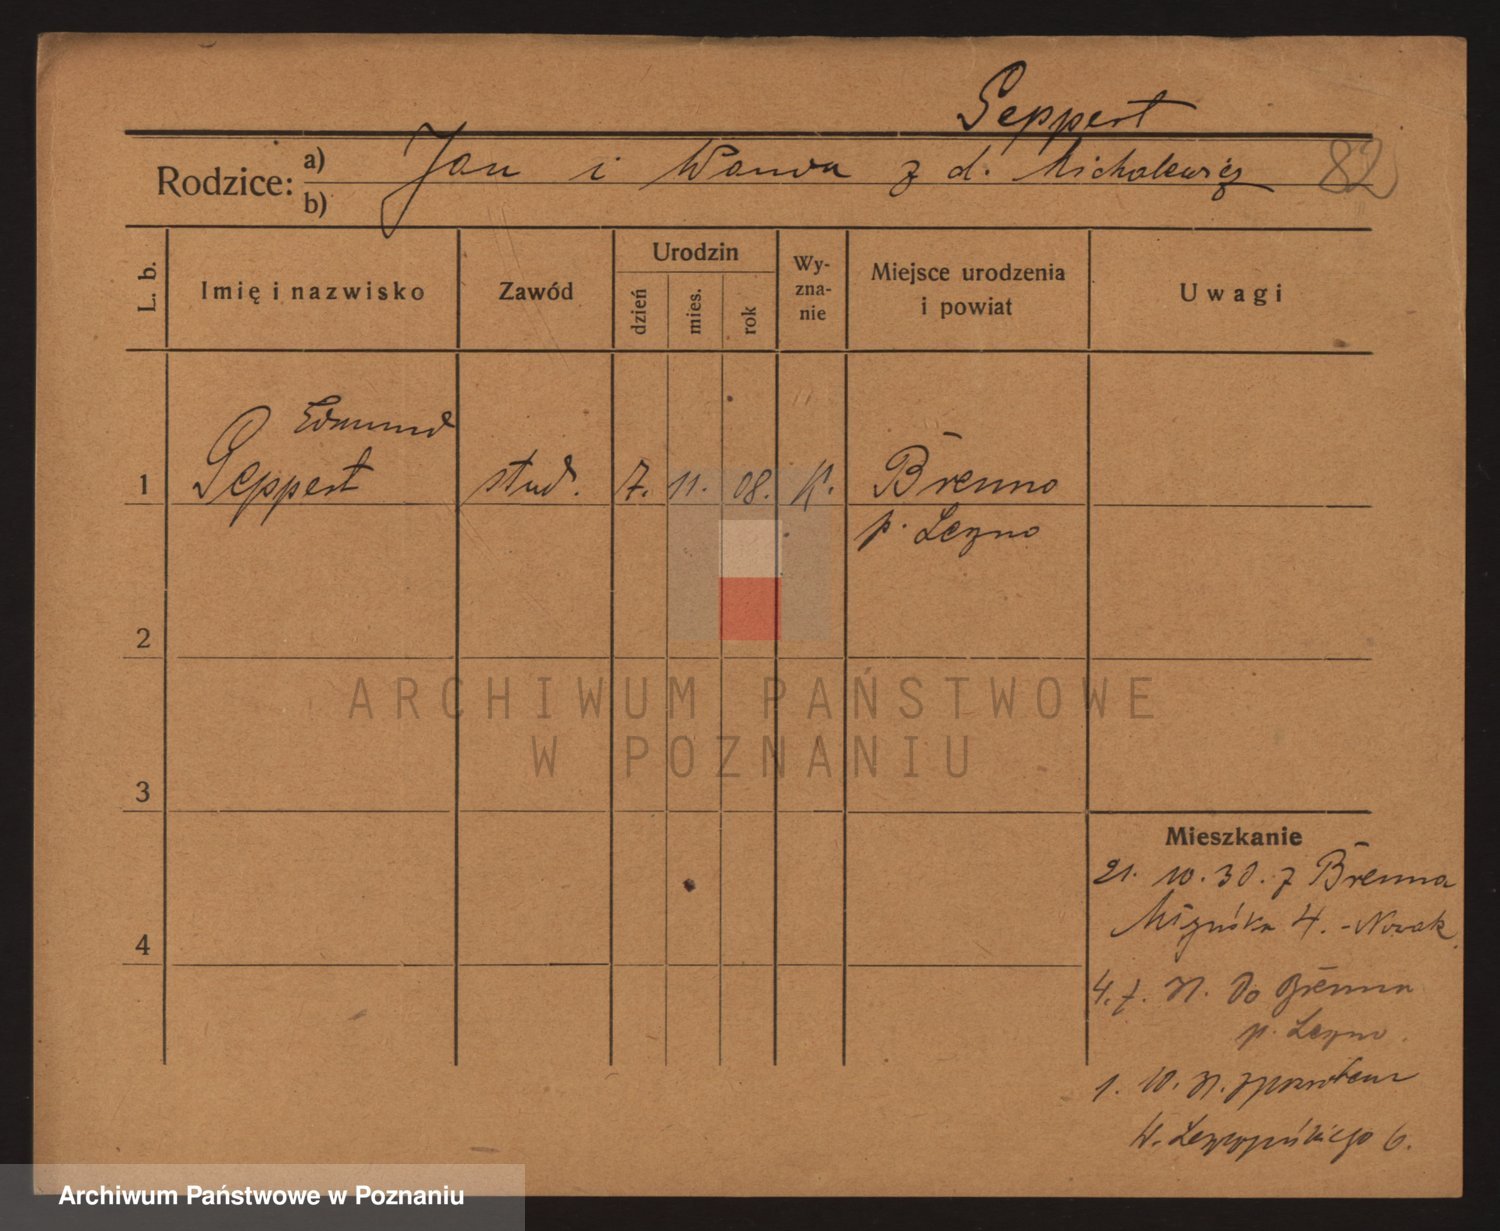 Seppert
Rodzice: a) Jan i Wanda z d. Michalewicz 82
b)
L. b.
Imię i nazwisko
Zawód
Urodzin
dzień
mies.
rok
Wy-
zna-
nie
Miejsce urodzenia
i powiat
Uwagi
Edmund
1 Seppert stud. 7. 11. 08. K. Brenno
p. Leszno
2
3
4
Mieszkanie
21. 10. 30. z Brenna
4. - Nowak
4. 7. 31. do Brenna
p. Leszno.
1. 10. 31. z powrotem
6.
ARCHIWUM PAŃSTWOWE
W POZNANIU
Archiwum Państwowe w Poznaniu